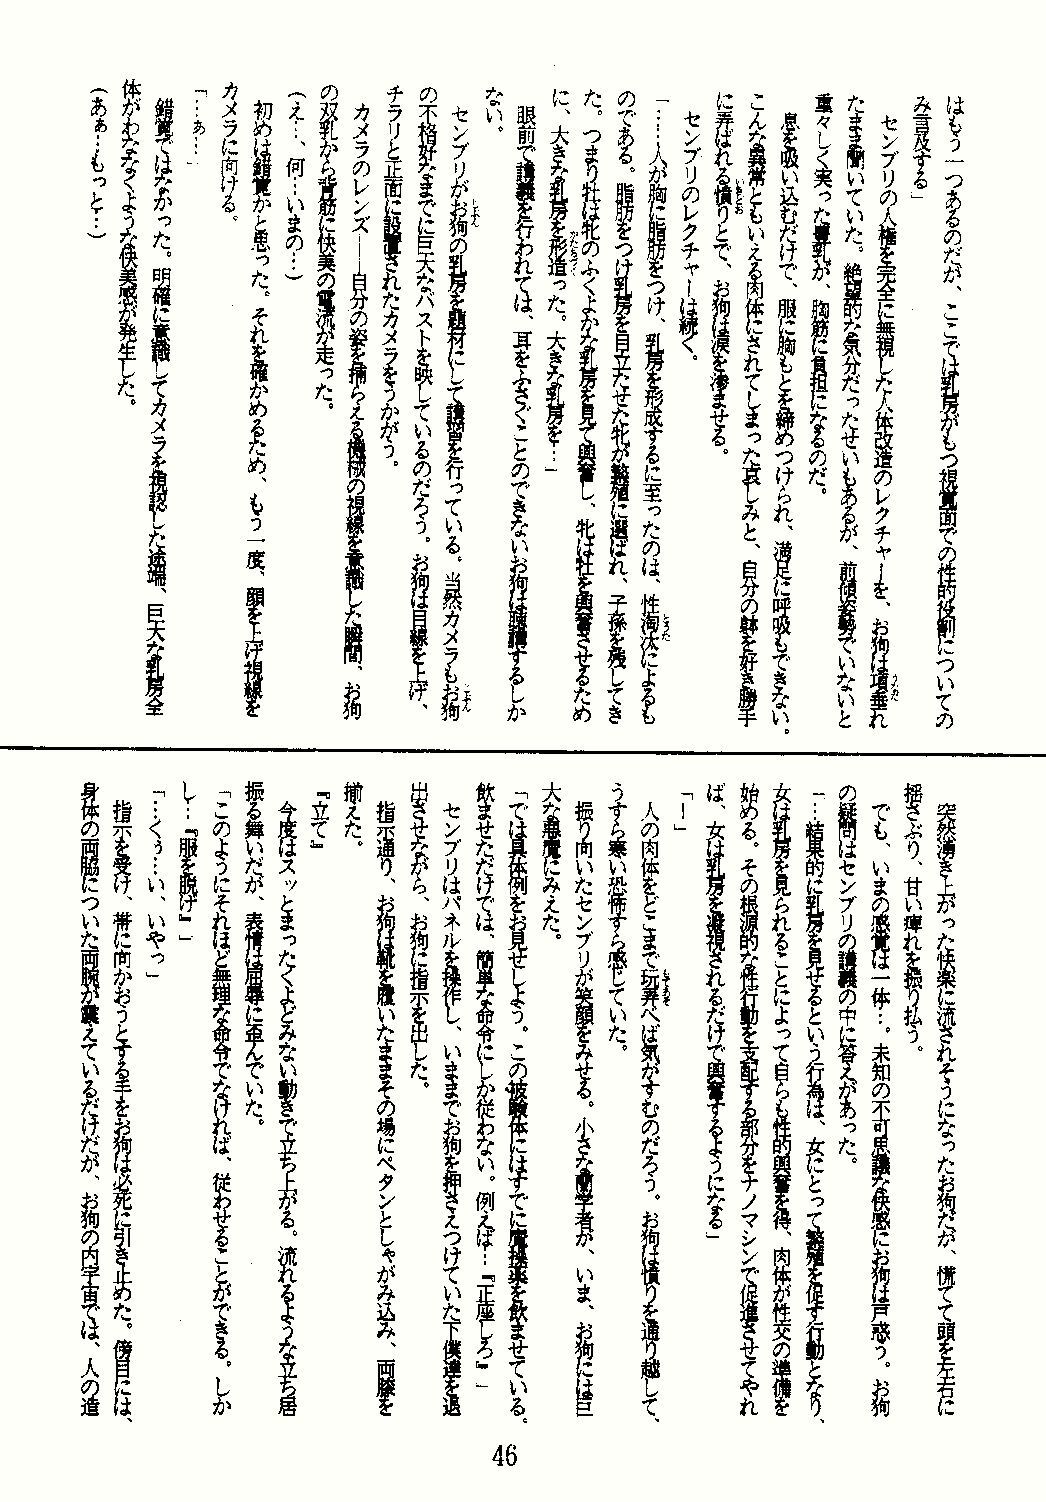 はもう一つあるのだが、ここでは乳房がもつ視覚面での性的役割についての
み言及する」
　センブリの人権を完全に無視した人体改造のレクチャーを、お狗は項垂れ
たまま聞いていた。絶望的な気分だったせいもあるが、前傾姿勢でいないと
重々しく実った爆乳が、胸筋に負担になるのだ。
　息を吸い込むだけで、服に胸もとを締めつけられ、満足に呼吸もできない。
こんな異常ともいえる肉体にされてしまった哀しみと、自分の躰を好き勝手
に弄ばれる憤りとで、お狗は涙を滲ませる。
　センブリのレクチャーは続く。
「……人が胸に脂肪をつけ、乳房を形成するに至ったのは、性淘汰によるも
のである。脂肪をつけ乳房を目立たせた牝が繁殖に選ばれ、子孫を残してき
た。つまり牡は牝のふくよかな乳房を見て興奮し、牝は牡を興奮させるため
に、大きな乳房を形造った。大きな乳房を…」
　眼前で講義を行われては、耳をふさぐことのできないお狗は聴講するしか
ない。
　センブリがお狗の乳房を題材にして講習を行っている。当然カメラもお狗
の不格好なまでに巨大なバストを映しているのだろう。お狗は目線を上げ、
チラリと正面に設置されたカメラをうかがう。
　カメラのレンズ――自分の姿を捕らえる機械の視線を意識した瞬間、お狗
の双乳から背筋に快美の電流が走った。
（え…、何…いまの…）
　初めは錯覚かと思った。それを確かめるため、もう一度、顔を上げ視線を
カメラに向ける。
「…ぁ…」
　錯覚ではなかった。明確に意識してカメラを視認した途端、巨大な乳房全
体がわななくような快美感が発生した。
（あぁ…もっと…）
　突然湧き上がった快楽に流されそうになったお狗だが、慌てて頭を左右に
揺さぶり、甘い痺れを振り払う。
　でも、いまの感覚は一体…。未知の不可思議な快感にお狗は戸惑う。お狗
の疑問はセンブリの講義の中に答えがあった。
「…結果的に乳房を見せるという行為は、女にとって繁殖を促す行動となり、
女は乳房を見られることによって自らも性的興奮を得、肉体が性交の準備を
始める。その根源的な性行動を支配する部分をナノマシンで促進させてやれ
ば、女は乳房を凝視されるだけで興奮するようになる」
「！」
　人の肉体をどこまで玩弄べば気がすむのだろう。お狗は憤りを通り越して、
うすら寒い恐怖すら感じていた。
　振り向いたセンブリが笑顔をみせる。小さな蘭学者が、いま、お狗には巨
大な悪魔にみえた。
「では具体例をお見せしよう。この被験体にはすでに魔操薬を飲ませている。
飲ませただけでは、簡単な命令にしか従わない。例えば…『正座しろ』」
　センブリはパネルを操作し、いままでお狗を押さえつけていた下僕達を退
出させながら、お狗に指示を出した。
　指示通り、お狗は靴を履いたままその場にペタンとしゃがみ込み、両膝を
揃えた。
『立て』
　今度はスッとまったくよどみない動きで立ち上がる。流れるような立ち居
振る舞いだが、表情は屈辱に歪んでいた。
「このようにそれほど無理な命令でなければ、従わせることができる。しか
し…『服を脱げ』」
「…くぅ…い、いやっ」
　指示を受け、帯に向かおうとする手をお狗は必死に引き止めた。傍目には、
身体の両脇についた両腕が震えているだけだが、お狗の内宇宙では、人の造
46